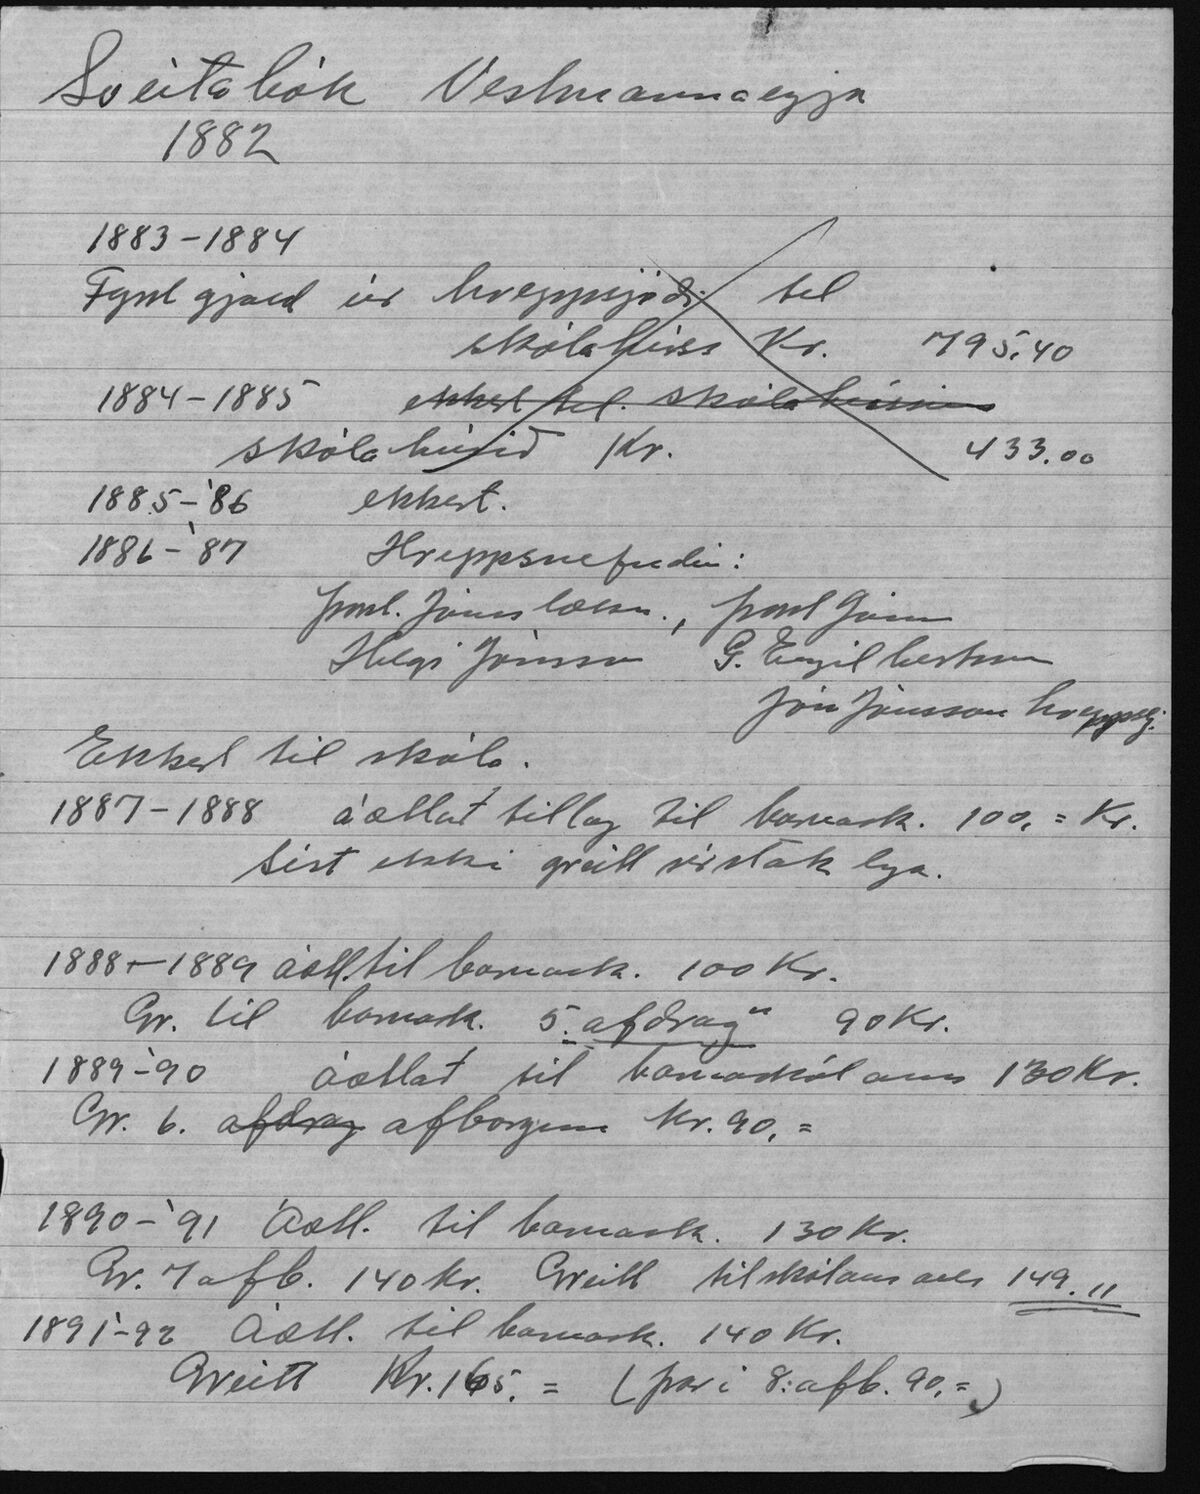 Sveitabók Vestmannaeyja
1882
1883-1884
Fyrst gjald úr hreppssjóði til
skólahúss Kr. 795.40
1884-1885 ekkert til skólahússins
skólahúsið Kr. 433.00
1885-'86 ekkert.
1886-'87 Hreppsnefndin:
Þorst. Jónss læknir, Þorst Jónss
Helgi Jónsson G. Engilbertsson
Jón Jónsson hreppstj.
Ekkert til skóla.
1887-1888 áætlað tillag til barnask. 100,= Kr.
sést ekki greitt sérstaklega.
1888-1889 áætl. til barnask. 100 Kr.
Gr. til barnask. 5. afdrag" 90 Kr.
1889-'90 áætlað til barnaskólans 130 Kr.
Gr. 6. afdrag afborgun Kr. 90,=
1890-'91 Áætl. til barnask. 130 Kr.
Gr. 7 afb. 140 Kr. Greitt til skólans alls 149.11
1891-92 Áætl. til barnask. 140 Kr.
Greitt Kr. 165,= (þar í 8. afb. 90,=)